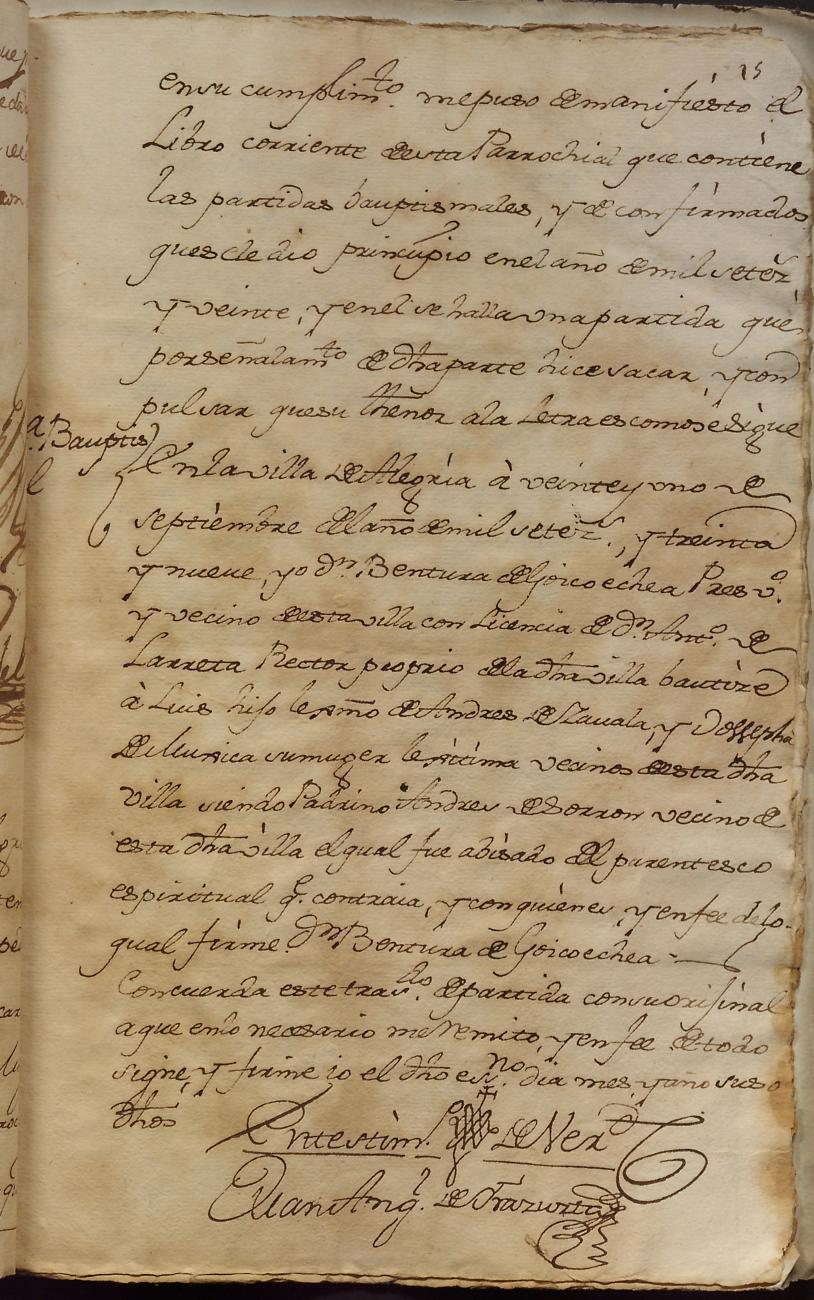 15
ensu cumplim.to me puso demanifiesto el
Libro corriente desta Parrochial que contiene
las partidas bauptismales, y de confirmados
quesele dio principio enel año demil setez.s
y veinte, y enel se halla una partida que
por señalam.to de dha parte hice sacar, y con
pulsar que su thenor ala Letra es como se sigue
Bauptis
En la villa de Alegria à veinte y uno de
septiembre del año de mil setez.s, y treinta
y nueve, yo Dn. Bentura de Goicoechea Presv.o
y vecino desta villa con Licencia de Dn. Ant.o de
Larreta Rector proprio de la dha villa bautize
à Luis hijo lexmo de Andres de Zavala, y Josepha
de Munica su muger lexitima vecinos desta dha
villa siendo Padrino Andres de Sorron vecino de
esta dha villa el qual fue abisado del parentesco
espiritual q.e contraia, y con quienes, y en fee de lo
qual firme. Dn Bentura de Goicoechea =
Concuerda este tras.do de partida con su orijinal
a que en lo necesario me Remito, y en fee de todo
signe, y firme io el dho es.no dia mes, y año suso
dhos
En testim.o de Ver.d
Juan Ang.l de